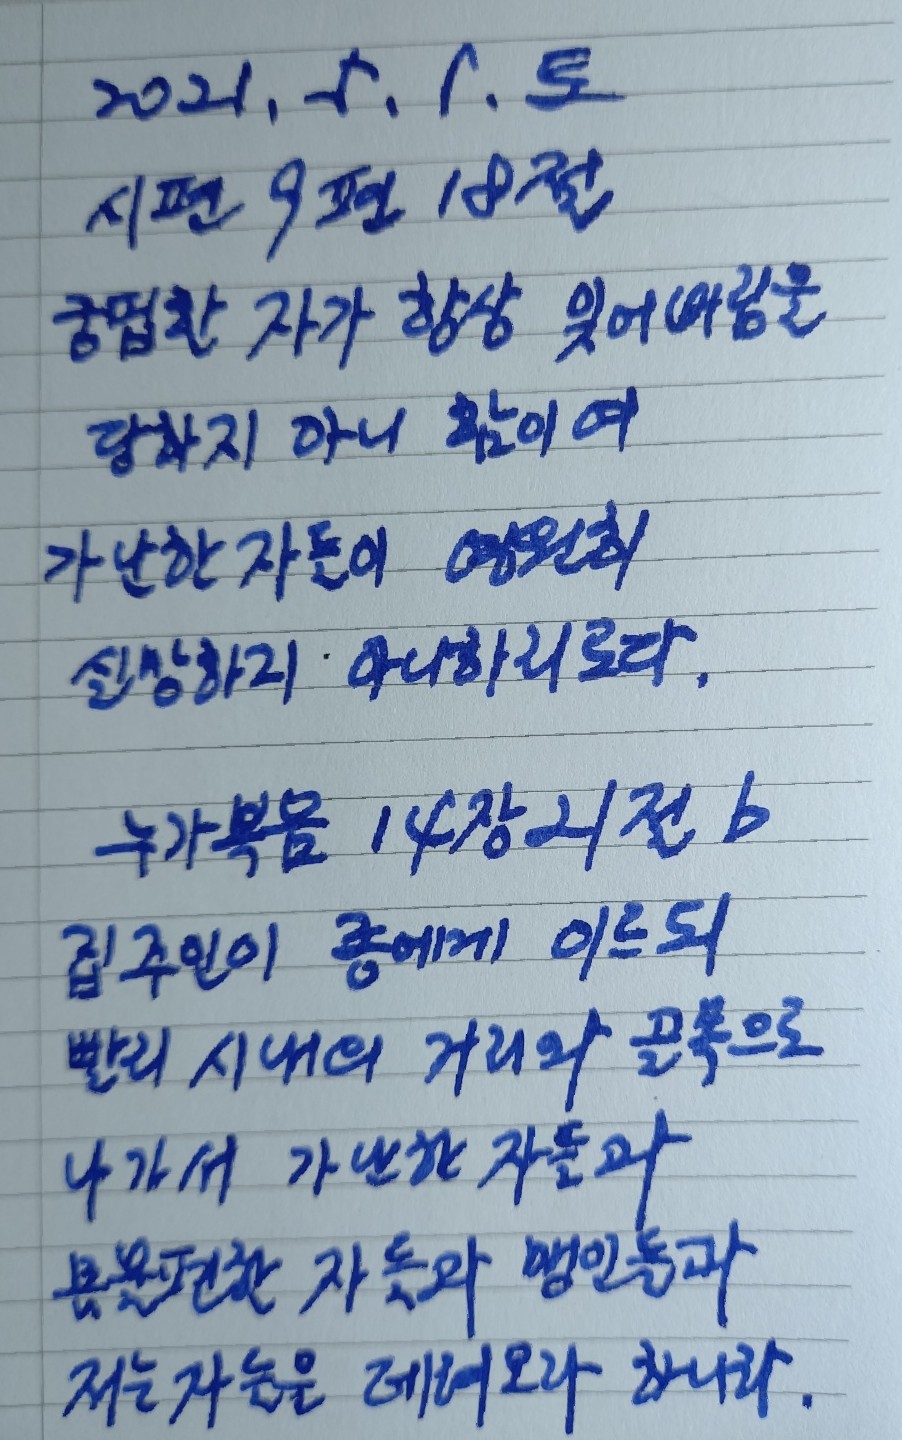 2021. 5. 1. 토
시편 9편 18절
궁핍한 자가 항상 잊어버림을
당하지 아니 함이여
가난한 자들이 영원히
실망하지 아니하리로다.
누가복음 14장 21절 b
집주인이 종에게 이르되
빨리 시내의 거리와 골목으로
나가서 가난한 자들과
몸불편한 자들과 맹인들과
저는자들을 데려오라 하니라.